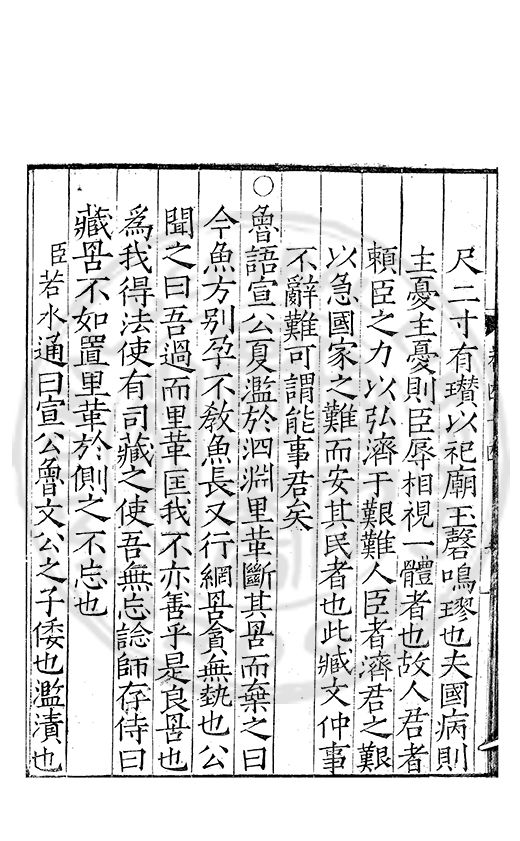 尺二寸有瓚以祀廟玉磬鳴璆也夫國病則
主憂主憂則臣辱相視一體者也故人君者
賴臣之力以弘濟于艱難人臣者濟君之艱
以急國家之難而安其民者也此臧文仲事
不辭難可謂能事君矣
○魯語宣公夏濫於泗淵里革斷其罟而棄之曰
今魚方别孕不敎魚長又行網罟貪無埶也公
聞之曰吾過而里革匡我不亦善乎是良罟也
爲我得法使有司藏之使吾無忘諗師存侍曰
藏罟不如置里革於側之不忘也
臣若水通曰宣公魯文公之子倭也濫漬也